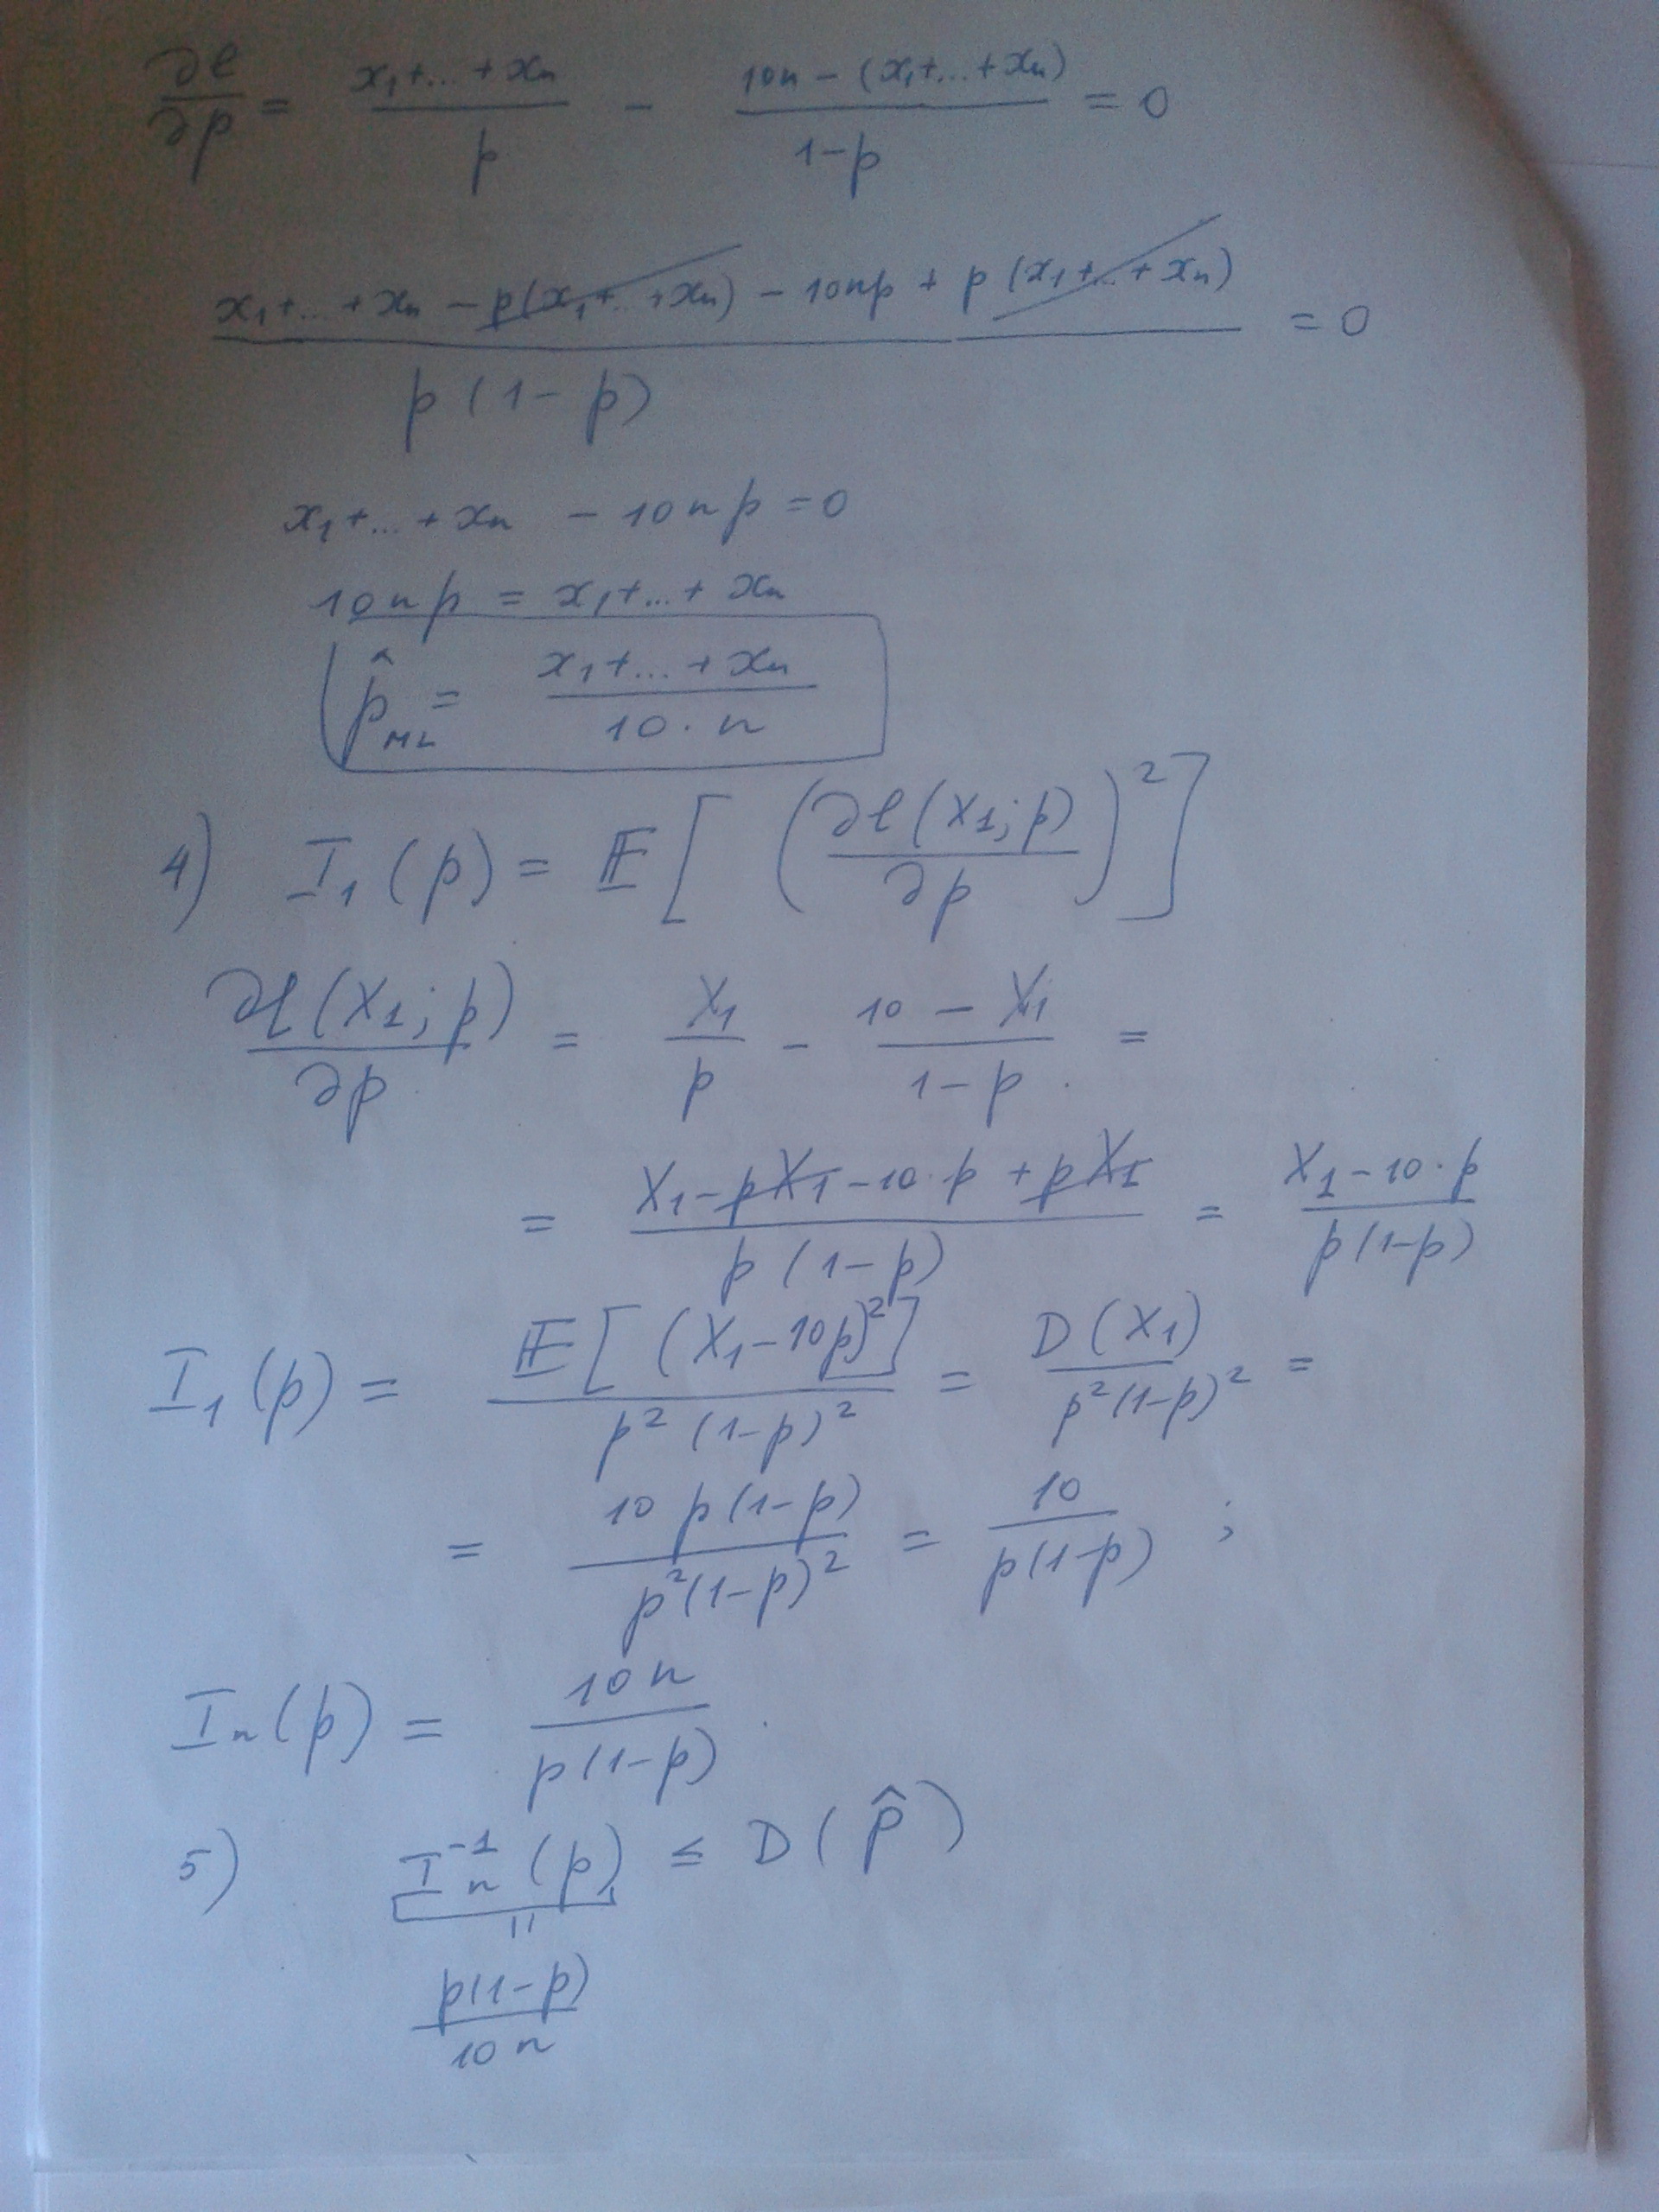 ∂ℓ/∂p = (x₁+...+xₙ)/p − (10n − (x₁+...+xₙ))/(1−p) = 0
(x₁+...+xₙ − p(x₁+...+xₙ) − 10np + p(x₁+...+xₙ))/(p(1−p)) = 0
x₁+...+xₙ − 10np = 0
10np = x₁+...+xₙ
p̂_ML = (x₁+...+xₙ)/(10·n)
4) I₁(p) = 𝔼[(∂ℓ(X₁;p)/∂p)²]
∂ℓ(X₁;p)/∂p = X₁/p − (10−X₁)/(1−p) =
= (X₁−pX₁−10·p+pX₁)/(p(1−p)) = (X₁−10·p)/(p(1−p))
I₁(p) = 𝔼[(X₁−10p)²]/(p²(1−p)²) = D(X₁)/(p²(1−p)²) =
= 10p(1−p)/(p²(1−p)²) = 10/(p(1−p)) ;
Iₙ(p) = 10n/(p(1−p)).
5) Iₙ⁻¹(p) ≤ D(p̂)
=
p(1−p)/(10n)